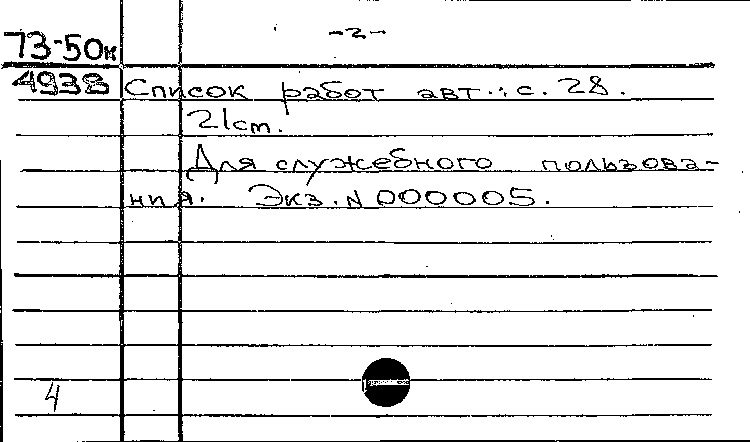 -2-
73-50к
4938
Список работ авт.: с. 28.
21cm.
Для служебного пользова-
ния. Экз. N 000005.
4